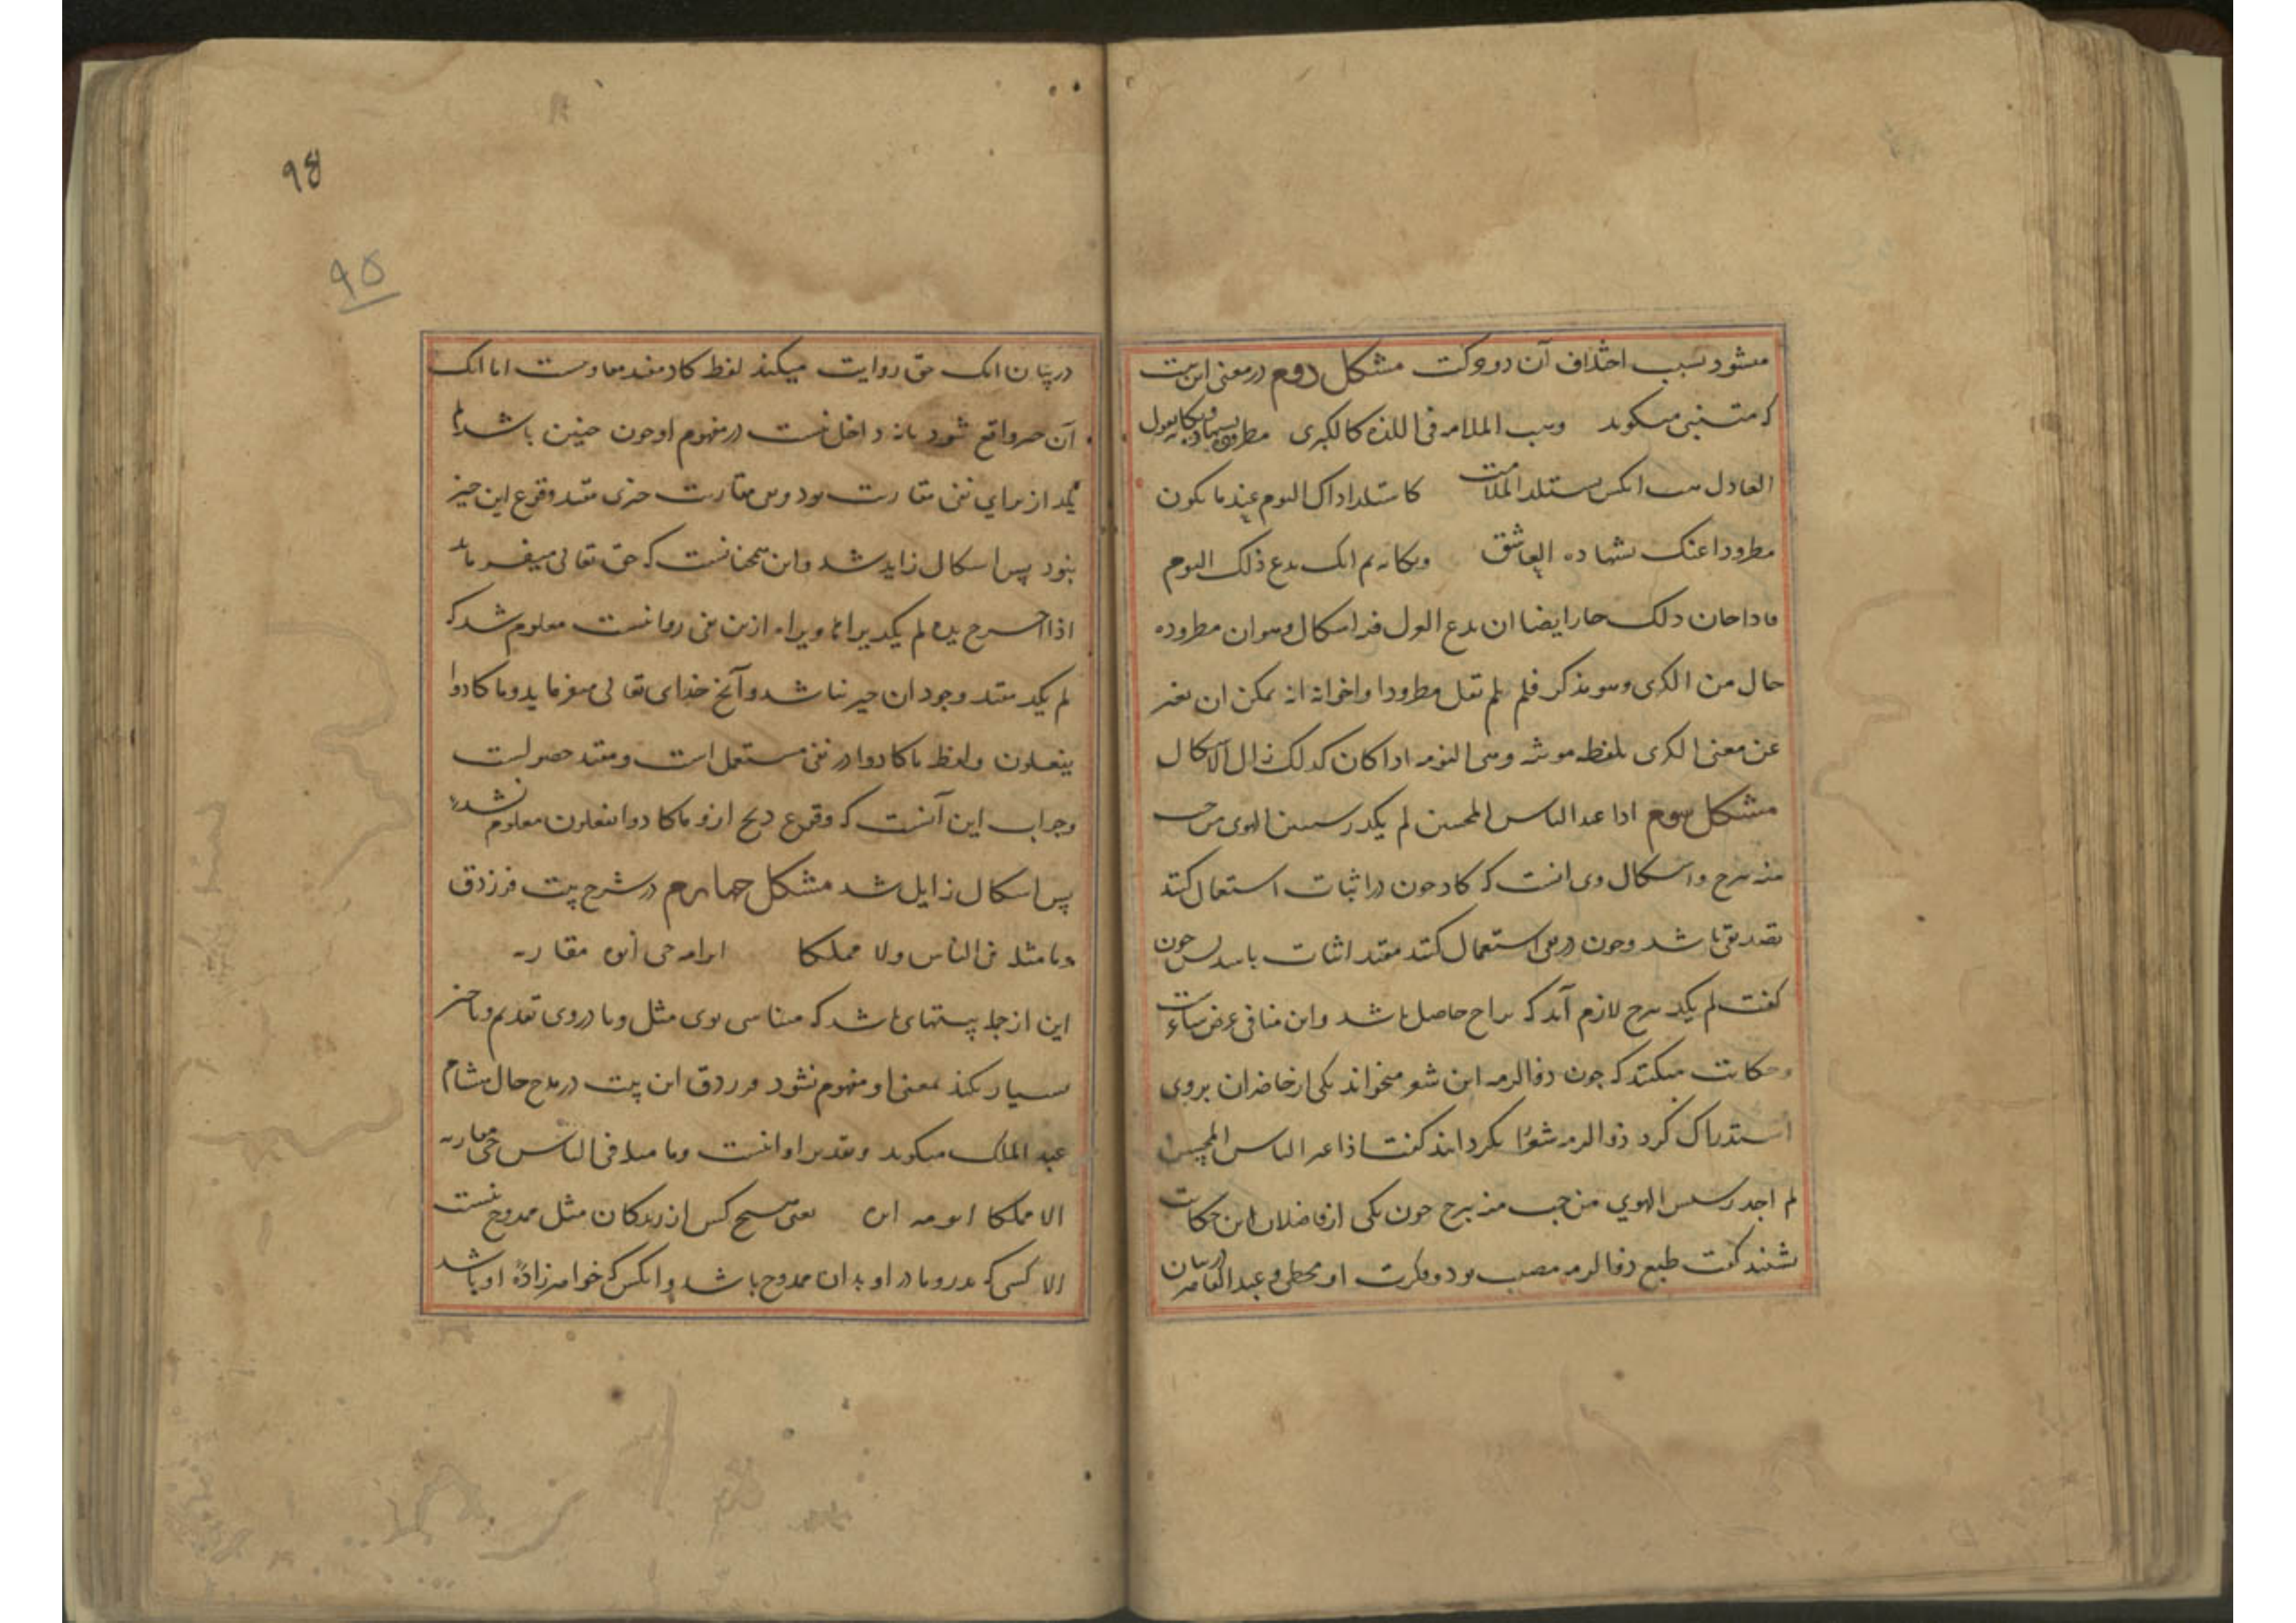 میشود بسبب اختلاف آن دو حرکت مشکل دوم در معنی این بیت
که متنبی میکوید وهب الملامه فی اللذه کالکری مطروده بسهاده وبکائه یقول
العادل هب انکس یستلذ الملامت کما ستلد اداک النوم عند ما یکون
مطرودا عنک بشهاده العاشق وبکائه ثم انک یدع ذلک النوم
فاذا جاز ذلک جاز ایضا ان یدع العول فیه اسکال وهو ان مطروده
حال من الکری وهو مذکر فلم لم تقل مطرودا وجوابه انه یمکن ان یعبر
عن معنی الکری بلفظه موثه وهی النومه اذا کان کذلک زال الاسکال
مشکل سوم اذا غیر الناس المحبین لم یکد رسیس الهوی من حب
میه یبرح واسکال وی انست که کاد چون در اثبات استعمال کنند
نفی باشد وچون در نفی استعمال کنند مفید اثبات باشد پس چون
کفت لم یکد یبرح لازم آید که براح حاصل باشد واین منافی غرض شاعرست
وحکایت میکنند که چون ذوالرمه این شعر میخواند یکی از حاضران بروی
استدراک کرد ذوالرمه شعر را بکردانید کفت اذا غیر الناس المحبین
لم اجد رسیس الهوی من حب میه یبرح چون یکی از فاضلان این حکایت
بشنید کفت طبع ذوالرمه مصیب بود وفکرت او مخطی وعبد القاهر در بیان
در بیان انک حق روایت میکند لفظ کاد مفید مقاربت اما انک
آن چیز واقع شود یا نه داخل نیست در مفهوم او چون چنین باشد لم
یکد از برای نفی مقاربت بود ونفی مقاربت چیزی مفید وقوع این چیز
نبود پس اسکال زاید شد واین همچنانست که حق تعالی میفرماید
اذا اخرج یده لم یکد یراها ویراه ازین نفی روا نیست معلوم شد که
لم یکد مفید وجود ان چیز نباشد وآنچ خدای تعالی میفرماید وما کادوا
یفعلون ولفظ ما کادوا در نفی مستعمل است ومفید حصولست
وجواب این آنست که وقوع ذبح از وما کادوا یفعلون معلوم نشد
پس اسکال زایل شد مشکل چهارم در شرح بیت فرزدق
وما مثله فی الناس ولا مملکا ابو امه حی ابوه یقاربه
این از جمله بیتهای باشد که مناسی بوی مثل وما در وی تقدیم وتاخیر
بسیار نکند معنی او مفهوم نشود فرزدق این بیت در مدح خال هشام
عبد الملک میکوید وتقدیر او انست وما مثله فی الناس حی یقاربه
الا مملکا ابو امه ابوه یعنی هیچ کس از زندکان مثل ممدوح نیست
الا کسی که پدر و مادر او پدر ان ممدوح باشد وانکس که خواهرزاده او باشد
98
95